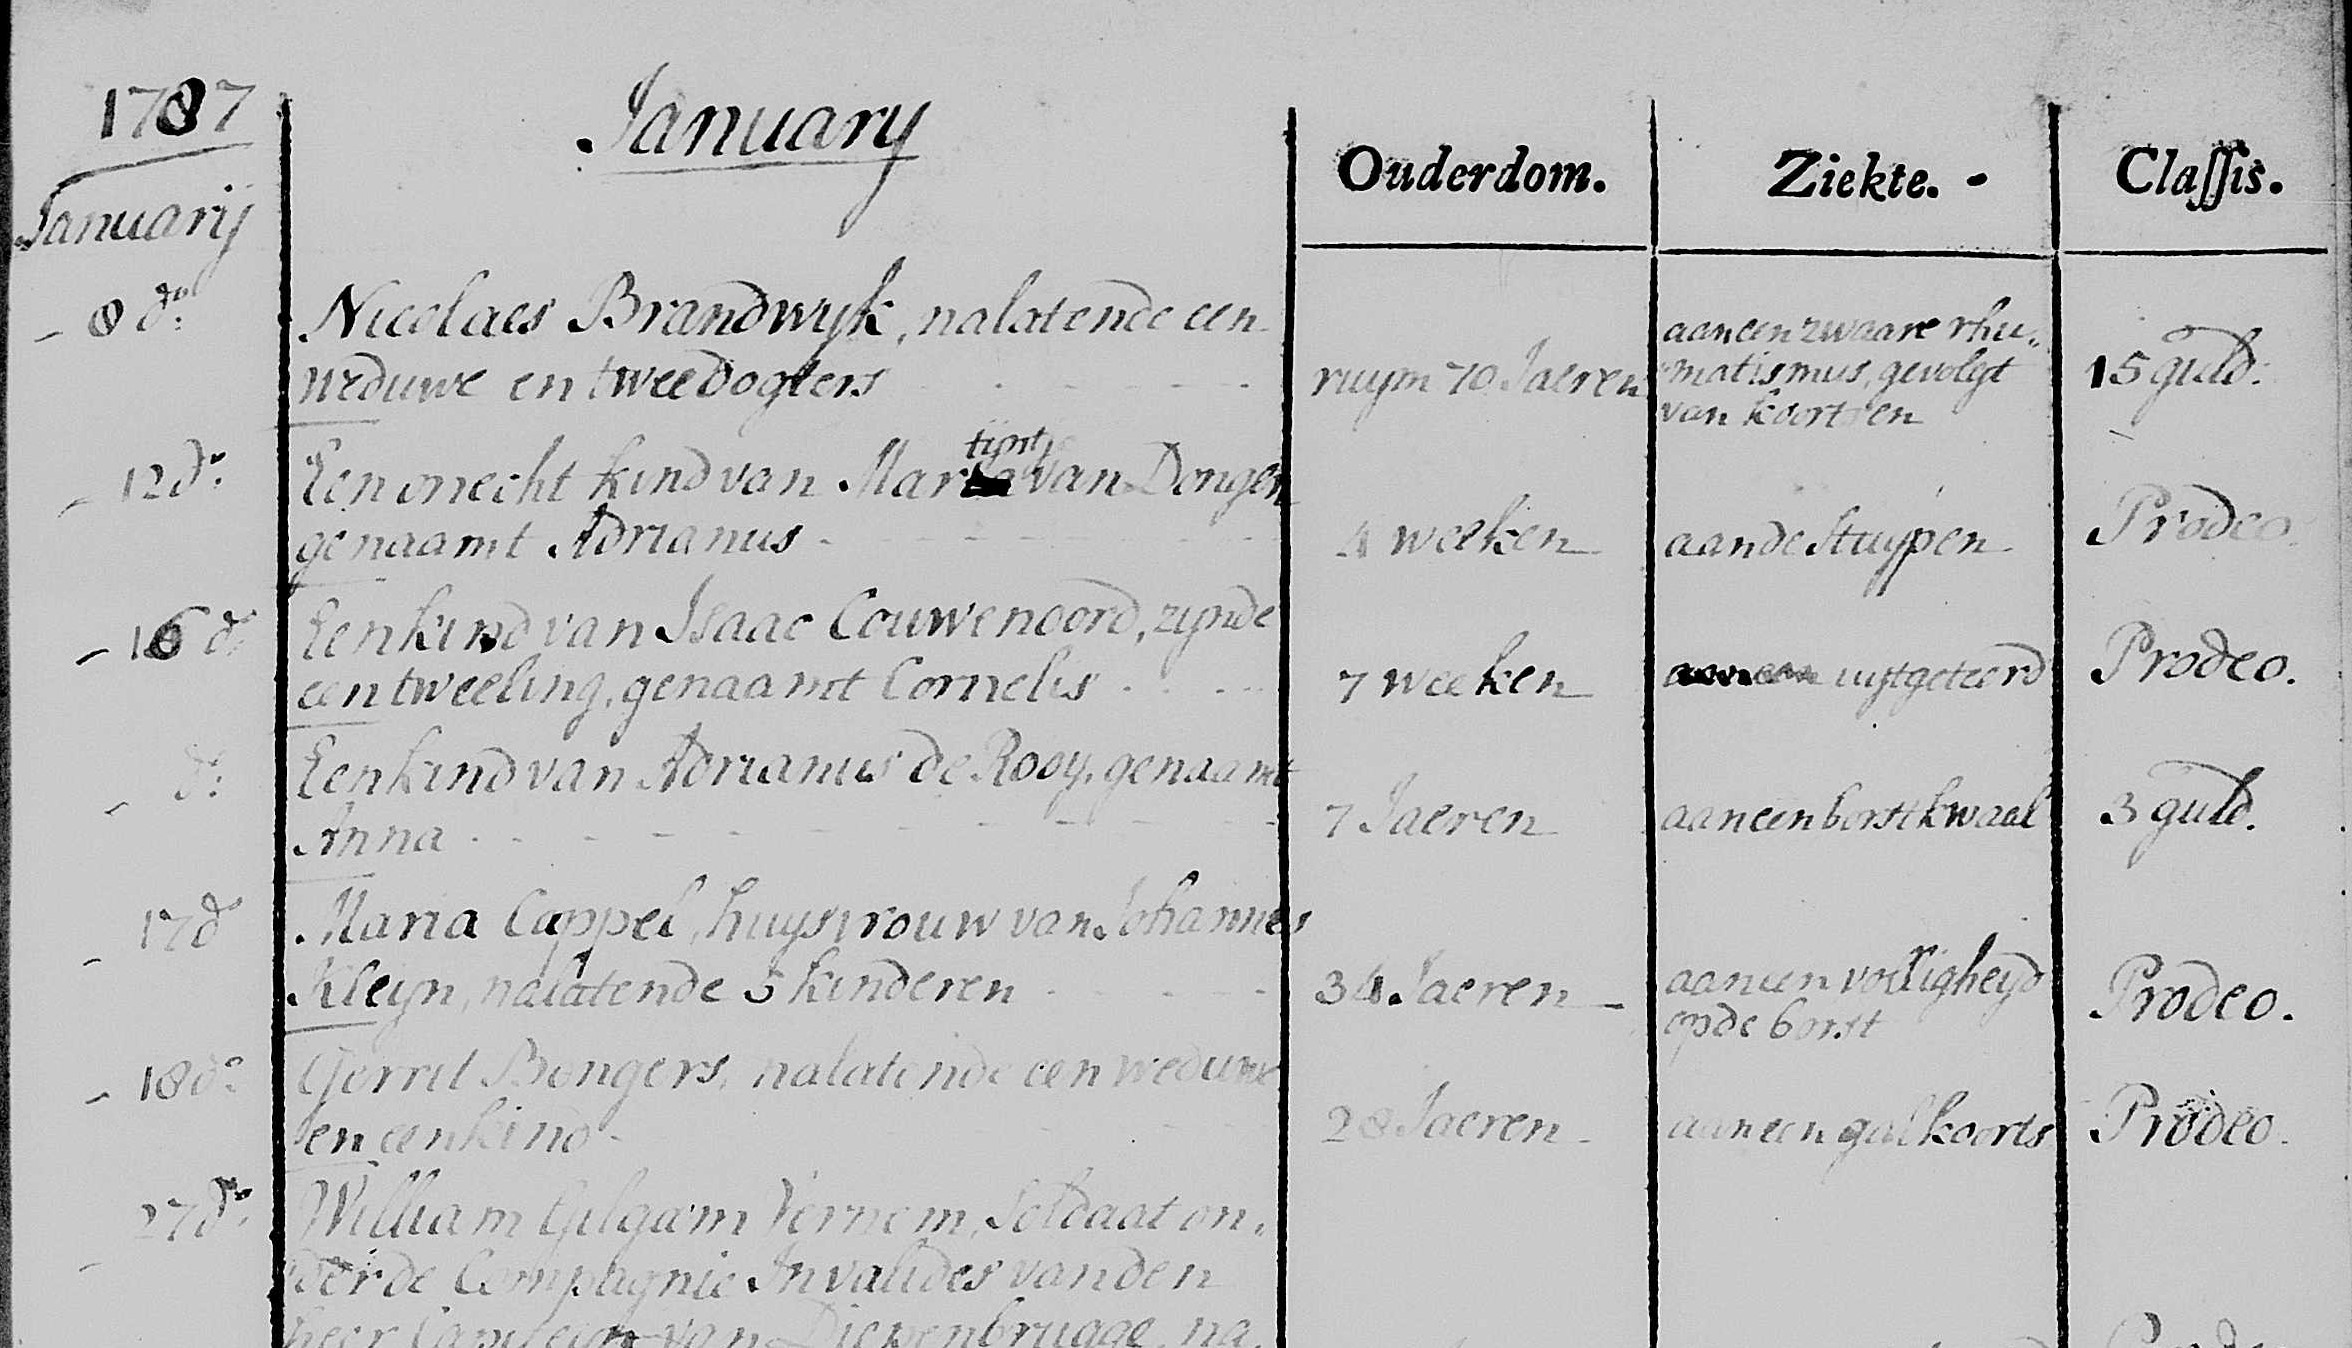 1787
January
Ouderdom.
Ziekte. -
Classis.
Januarij
- 8 do:
Nicolaes Brandwijk, nalatende een
weduwe en twee dogters
ruijm 70 Jaeren
aan een zwaare rhu„
matismus, gevolgt
van koortsen
15 guld:
- 12 do:
tijnt
Een onecht kind van Mar van Dongen
genaamt Adrianus
4 weeken
aan de Stuijpen
Prodeo.
- 16 do:
Een kind van Isaac Couwenoord, zijnde
een tweeling, genaamt Cornelis
7 weeken
uijtgeteerd
Prodeo.
- do:
Een kind van Adrianus de Rooy, genaamt
Anna
7 Jaeren
aan een borstkwaal
3 guld.
- 17 do
Maria Cappel, huijsvrouw van Johannes
Kleijn, nalatende 5 kinderen
34 Jaeren
aan een volligheijd
op de borst
Prodeo.
- 18 do:
Gerrit Bongers, nalatende een weduwe
en een kind
28 Jaeren
aan een galkoorts
Prodeo.
- 27 do:
William Vernem, Soldaat on„
der de Compagnie Invalides van den
heer van Diepenbrugge, na„